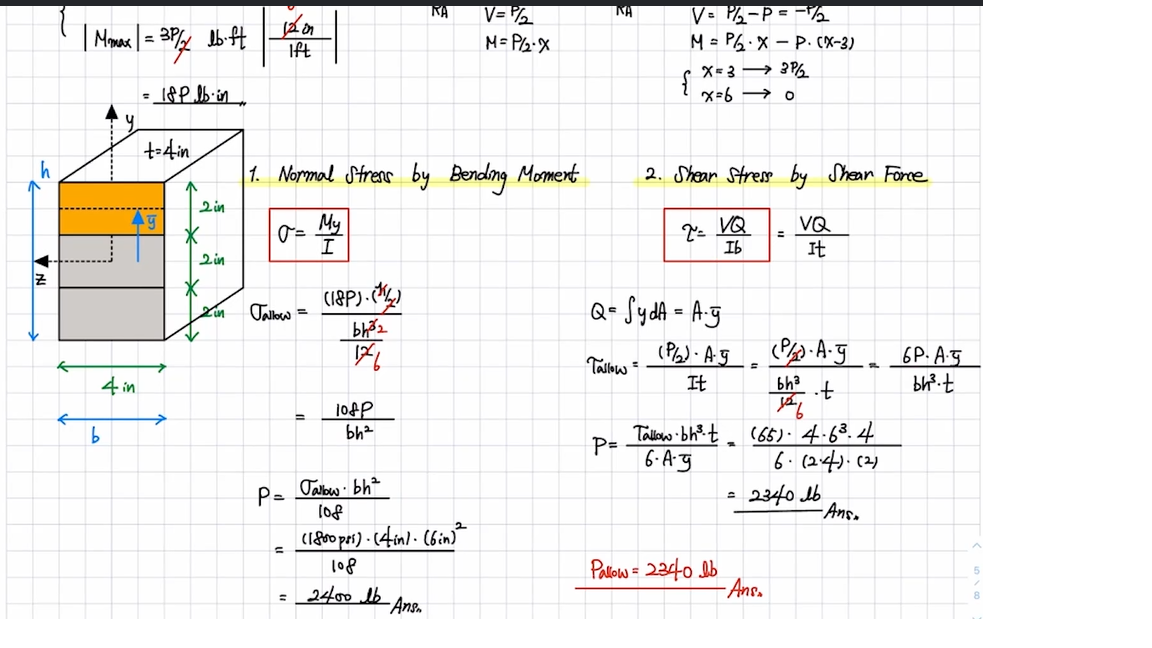 |Mmax| = 3P/2 lb·ft | 12 in / 1ft |
= 18P lb·in
RA
V = P/2
M = P/2 · x
RA
V = P/2 - P = -P/2
M = P/2 · x - P · (x-3)
{ x=3 → 3P/2
x=6 → 0
y
t=4in
h
2in
ȳ
2in
z
2in
4 in
b
1. Normal Stress by Bending Moment
σ = My / I
σallow = (18P)·(h/2) / (bh³/12)
= 108P / bh²
P = σallow · bh² / 108
= (1800psi)·(4in)·(6in)² / 108
= 2400 lb Ans.
2. Shear Stress by Shear Force
τ = VQ / Ib = VQ / It
Q = ∫y dA = A·ȳ
τallow = (P/2)·A·ȳ / It = (P/2)·A·ȳ / (bh³/12 · t) = 6P·A·ȳ / bh³·t
P = τallow·bh³·t / 6·A·ȳ = (65)·4·6³·4 / 6·(2·4)·(2)
= 2340 lb Ans.
Pallow = 2340 lb Ans.
5
/
8